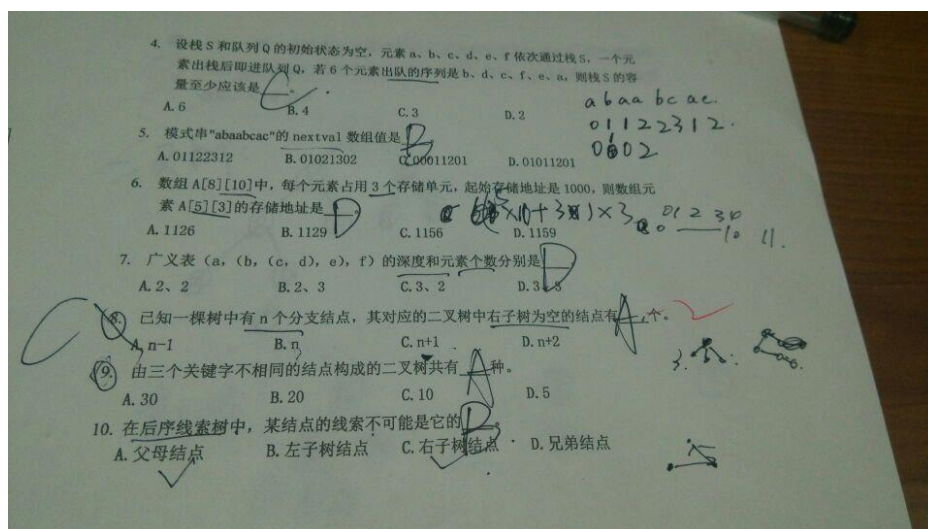 4. 设栈 S 和队列 Q 的初始状态为空，元素 a、b、c、d、e、f 依次通过栈 S，一个元
素出栈后即进队列 Q，若 6 个元素出队的序列是 b、d、c、f、e、a，则栈 S 的容
量至少应该是 C 。
A. 6 B. 4 C. 3 D. 2
a b a a b c a c.
0 1 1 2 2 3 1 2.
5. 模式串"abaabcac"的 nextval 数组值是 B
A. 01122312 B. 01021302 C. 00011201 D. 01011201
6. 数组 A[8][10]中，每个元素占用 3 个存储单元，起始存储地址是 1000，则数组元
素 A[5][3]的存储地址是 D 。
A. 1126 B. 1129 C. 1156 D. 1159
7. 广义表（a，（b，（c，d），e），f）的深度和元素个数分别是 D
A. 2、2 B. 2、3 C. 3、2 D. 3、3
8. 已知一棵树中有 n 个分支结点，其对应的二叉树中右子树为空的结点有 A 个。
A. n-1 B. n C. n+1 D. n+2
9. 由三个关键字不相同的结点构成的二叉树共有 A 种。
A. 30 B. 20 C. 10 D. 5
10. 在后序线索树中，某结点的线索不可能是它的
A. 父母结点 B. 左子树结点 C. 右子树结点 D. 兄弟结点